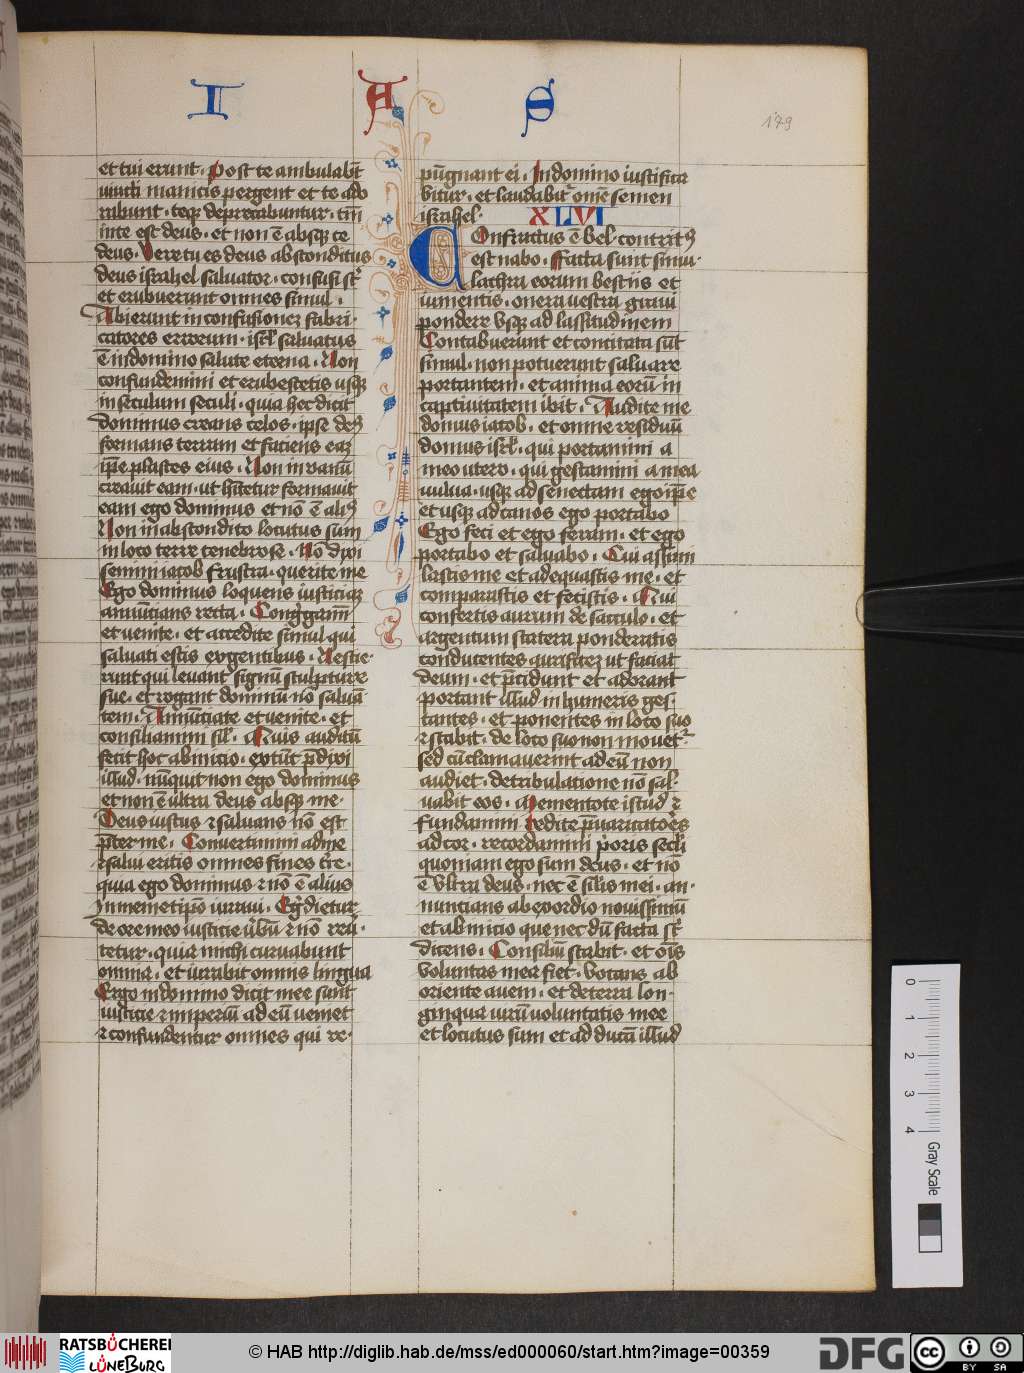 I A S
179
et tui erunt. Post te ambulabūt
vincti manicis pergent et te ado
rabunt. teqꝫ deprecabuntur. tm̄
in te est deus. et non ē absqꝫ te
deus. Vere tu es deus absconditus
deus israhel saluator. confusi st̄
et erubuerunt omnes simul.
Abierunt in confusionez fabri-
catores errorum. isrl̄ saluatus
ē in domino salute eterna. Non
confundemini et erubescetis usqꝫ
in seculum seculi. quia hec dicit
dominus creans celos. ipse deꝰ
formans terram et faciens eaz
ip̄e plastes eius. Non in vanū
creauit eam. ut hītetur formauit
eam ego dominus et nō ē aliꝰ
Non in abscondito locutus sum
in loco terre tenebrose. Nō dixi
semini iacob frustra. querite me
Ego dominus loquens iusticiaz
annūcians recta. Congregamī
et venite. et accedite simul qui
saluati estis ex gentibus. Nescie-
runt qui leuant signū sculpture
sue. et rogant dominū nō saluā
tem. Annūciate et venite. et
consiliamini sil̄. Quis auditū
fecit hoc ab inicio. ex tūc p̄dixi
illud. nūquit non ego dominus
et non ē ultra deus absqꝫ me.
Deus iustus ⁊ saluans nō est
p̄ter me. Conuertimini ad me
⁊ salui eritis omnes fines tr̄e.
quia ego dominus ⁊ nō ē alius
In memetip̄o iuraui. Egrēdietur
de ore meo iusticie ūbū ⁊ nō reū-
tetur. quia michi curuabunt
omnia. et iurabit omnis lingua
Ergo in domino dicit mee sunt
iusticie ⁊ imperiū ad eū veniet
⁊ confundentur omnes qui re-
pūgnant ei. In domino iustifica
bitur. et laudabit᷑ omē semen
israhel. XLVI
Confractus ē bel. contritꝰ
est nabo. Facta sunt simu-
lachra eorum bestiis et
iumentis. onera vestra graui
pondere vsqꝫ ad lassitudinem
Contabuerunt et contrita sūt
simul. non potuerunt saluare
portantem. et anima eorū in
captiuitatem ibit. Audite me
domus iacob. et omne residuū
domus isrl̄. qui portamini a
meo utero. qui gestamini a mea
vulua. usqꝫ ad senectam ego ip̄e
et usqꝫ ad canos ego portabo
Ego feci et ego feram. et ego
portabo et saluabo. Cui assimi
lastis me et adequastis me. et
comparastis et fecistis. Qui
confertis aurum de sacculo. et
argentum statera ponderatis
conducentes aurificez ut faciat
deum. et p̄cidunt et adorant
portant illud in humeris ges-
tantes. et ponentes in loco suo
⁊ stabit. de loco suo non mouet᷑.
sed cū clamauerint ad eū non
audiet. de tribulatione nō sal-
uabit eos. Mementote istud ⁊
fundamini redite p̄uaricatores
ad cor. recordamini p̄oris secl̄i
quoniam ego sum deus. et nō
ē vltra deus. nec ē sil̄is mei. an-
nuncians ab exordio nouissimū
et ab inicio que nec dū facta st̄
dicens. Consiliū stabit. et oīs
voluntas mea fiet. Vocans ab
oriente auem. et de terra lon-
ginqua virū voluntatis mee
et locutus sum et adducā illud
0 1 2 3 4
Gray Scale
RATSBÜCHEREI
LÜNEBURG
© HAB http://diglib.hab.de/mss/ed000060/start.htm?image=00359
DFG
cc BY SA